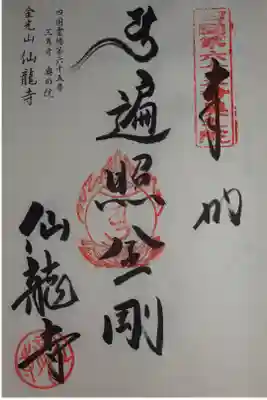 奉納
遍照金剛
四国霊場第六十五番
三角寺 奥の院
金光山 仙龍寺
仙龍寺